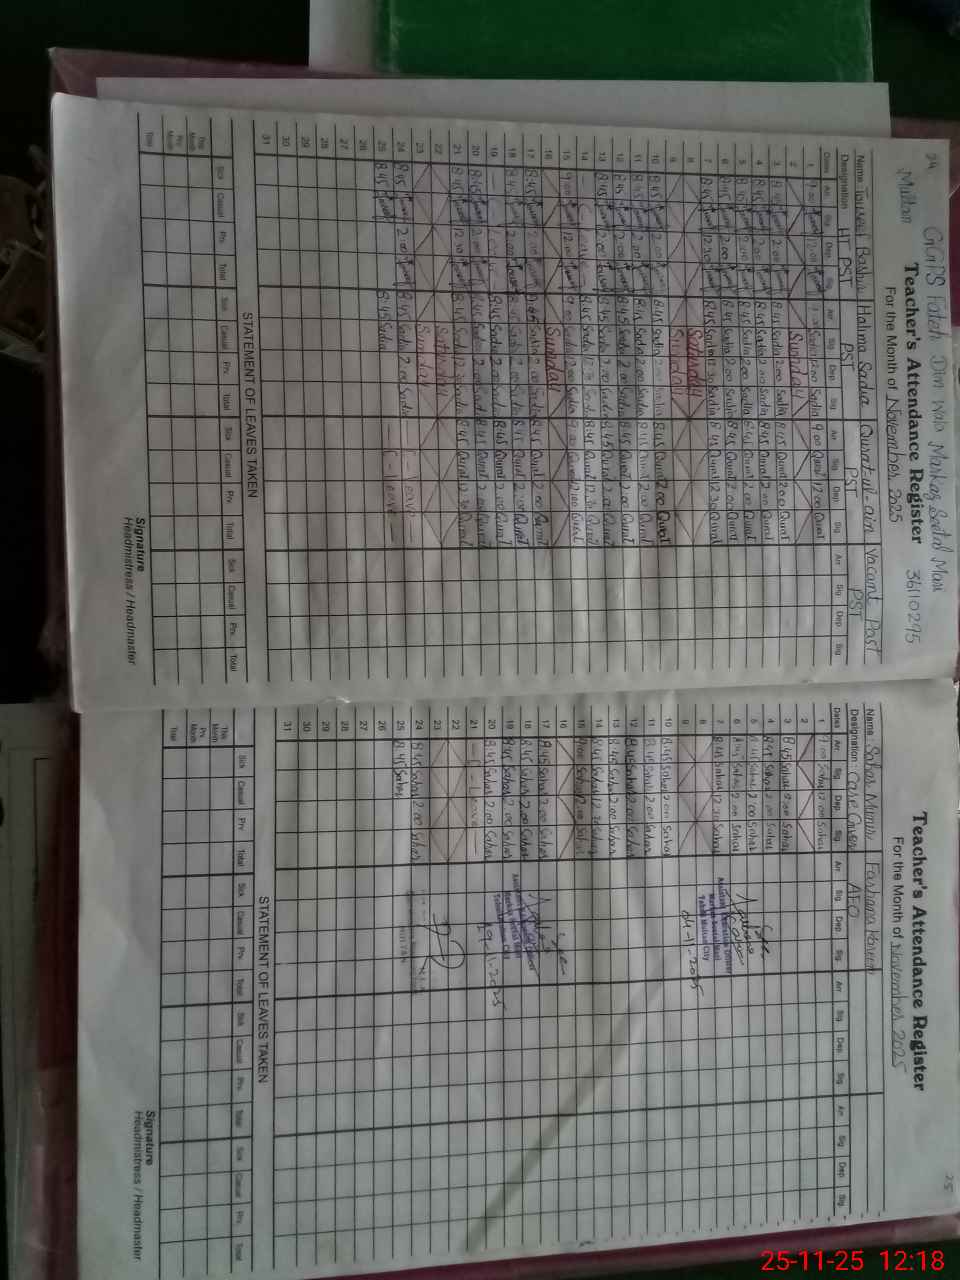 24
GGPS Fateh Din Wala Markez Seetal Mari
Multan
Teacher's Attendance Register 36110295
For the Month of November 2025
Name Halima Sadia Quratul-ain Vacant Post
Designation HT PST PST PST PST
Dates Arr. Sig. Dep. Sig. Arr. Sig. Dep. Sig. Arr. Sig. Dep. Sig. Arr. Sig. Dep. Sig.
1 9:00 12:00 Sadia 12:00 Sadia 9:00 Qurat 12:00 Qurat
2 Sunday
3 8:45 2:00 8:45 Sadia 2:00 Sadia 8:45 Qurat 2:00 Qurat
4 8:45 2:00 8:45 Sadia 2:00 Sadia 8:45 Qurat 2:00 Qurat
5 8:45 2:00 8:45 Sadia 2:00 Sadia 8:45 Qurat 2:00 Qurat
6 8:45 2:00 8:45 Sadia 2:00 Sadia 8:45 Qurat 2:00 Qurat
7 8:45 12:30 8:45 Sadia 12:30 Sadia 8:45 Qurat 12:30 Qurat
8 Saturday
9 Sunday
10 8:45 2:00 8:45 Sadia 2:00 Sadia 8:45 Qurat 2:00 Qurat
11 8:45 2:00 8:45 Sadia 2:00 Sadia 8:45 Qurat 2:00 Qurat
12 8:45 2:00 8:45 Sadia 2:00 Sadia 8:45 Qurat 2:00 Qurat
13 8:45 2:00 8:45 Sadia 2:00 Sadia 8:45 Qurat 2:00 Qurat
14 Leave 8:45 Sadia 12:30 Sadia 8:45 Qurat 12:30 Qurat
15 9:00 12:00 9:00 Sadia 12:00 Sadia 9:00 Qurat 12:00 Qurat
16 Sunday
17 8:45 2:00 8:45 Sadia 2:00 Sadia 8:45 Qurat 2:00 Qurat
18 8:45 2:00 8:45 Sadia 2:00 Sadia 8:45 Qurat 2:00 Qurat
19 8:45 Sadia 2:00 Sadia 8:45 Qurat 2:00 Qurat
20 8:45 2:00 8:45 Sadia 2:00 Sadia 8:45 Qurat 2:00 Qurat
21 8:45 12:30 8:45 Sadia 12:30 Sadia 8:45 Qurat 12:30 Qurat
22 Saturday
23 Sunday
24 8:45 2:00 8:45 Sadia 2:00 Sadia Leave
25 8:45 8:45 Sadia Leave
26
27
28
29
30
31
STATEMENT OF LEAVES TAKEN
Sick Casual Prv. Total Sick Casual Prv. Total Sick Casual Prv. Total Sick Casual Prv. Total
This Month
Prv. Month
Total
Signature
Headmistress / Headmaster
25
Teacher's Attendance Register
For the Month of November 2025
Name: Sahar Farhana
Designation: Care Giver AEO
Dates Arr. Sig. Dep. Sig. Arr. Sig. Dep. Sig. Arr. Sig. Dep. Sig. Arr. Sig. Dep. Sig.
1 9:00 Sahar 12:00 Sahar
2
3 8:45 Sahar 2:00 Sahar
4 8:45 Sahar 2:00 Sahar
5 8:45 Sahar 2:00 Sahar
6 8:45 Sahar 2:00 Sahar
7 8:45 Sahar 12:30 Sahar
8
9
10 8:45 Sahar 2:00 Sahar
11 8:45 Sahar 2:00 Sahar
12 8:45 Sahar 2:00 Sahar
13 8:45 Sahar 2:00 Sahar
14 8:45 Sahar 12:30 Sahar
15 9:00 Sahar 12:00 Sahar
16
17 8:45 Sahar 2:00 Sahar
18 8:45 Sahar 2:00 Sahar
19 8:45 Sahar 2:00 Sahar
20 8:45 Sahar 2:00 Sahar
21 Leave
22
23
24 8:45 Sahar 2:00 Sahar
25 8:45 Sahar
26
27
28
29
30
31
Assistant Education Officer
Markaz Seetal Mari
Tehsil Multan City
STATEMENT OF LEAVES TAKEN
Sick Casual Prv. Total Sick Casual Prv. Total Sick Casual Prv. Total Sick Casual Prv. Total
This Month
Prv. Month
Total
Signature
Headmistress / Headmaster
25-11-25 12:18